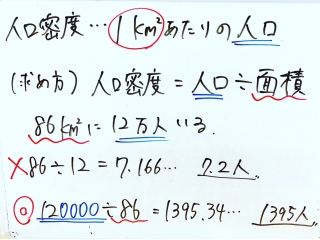 人口密度…1km²あたりの人口
(求め方) 人口密度=人口÷面積
86km²に12万人いる.
×86÷12=7.166… 7.2人〃
◎120000÷86=1395.34… 1395人〃